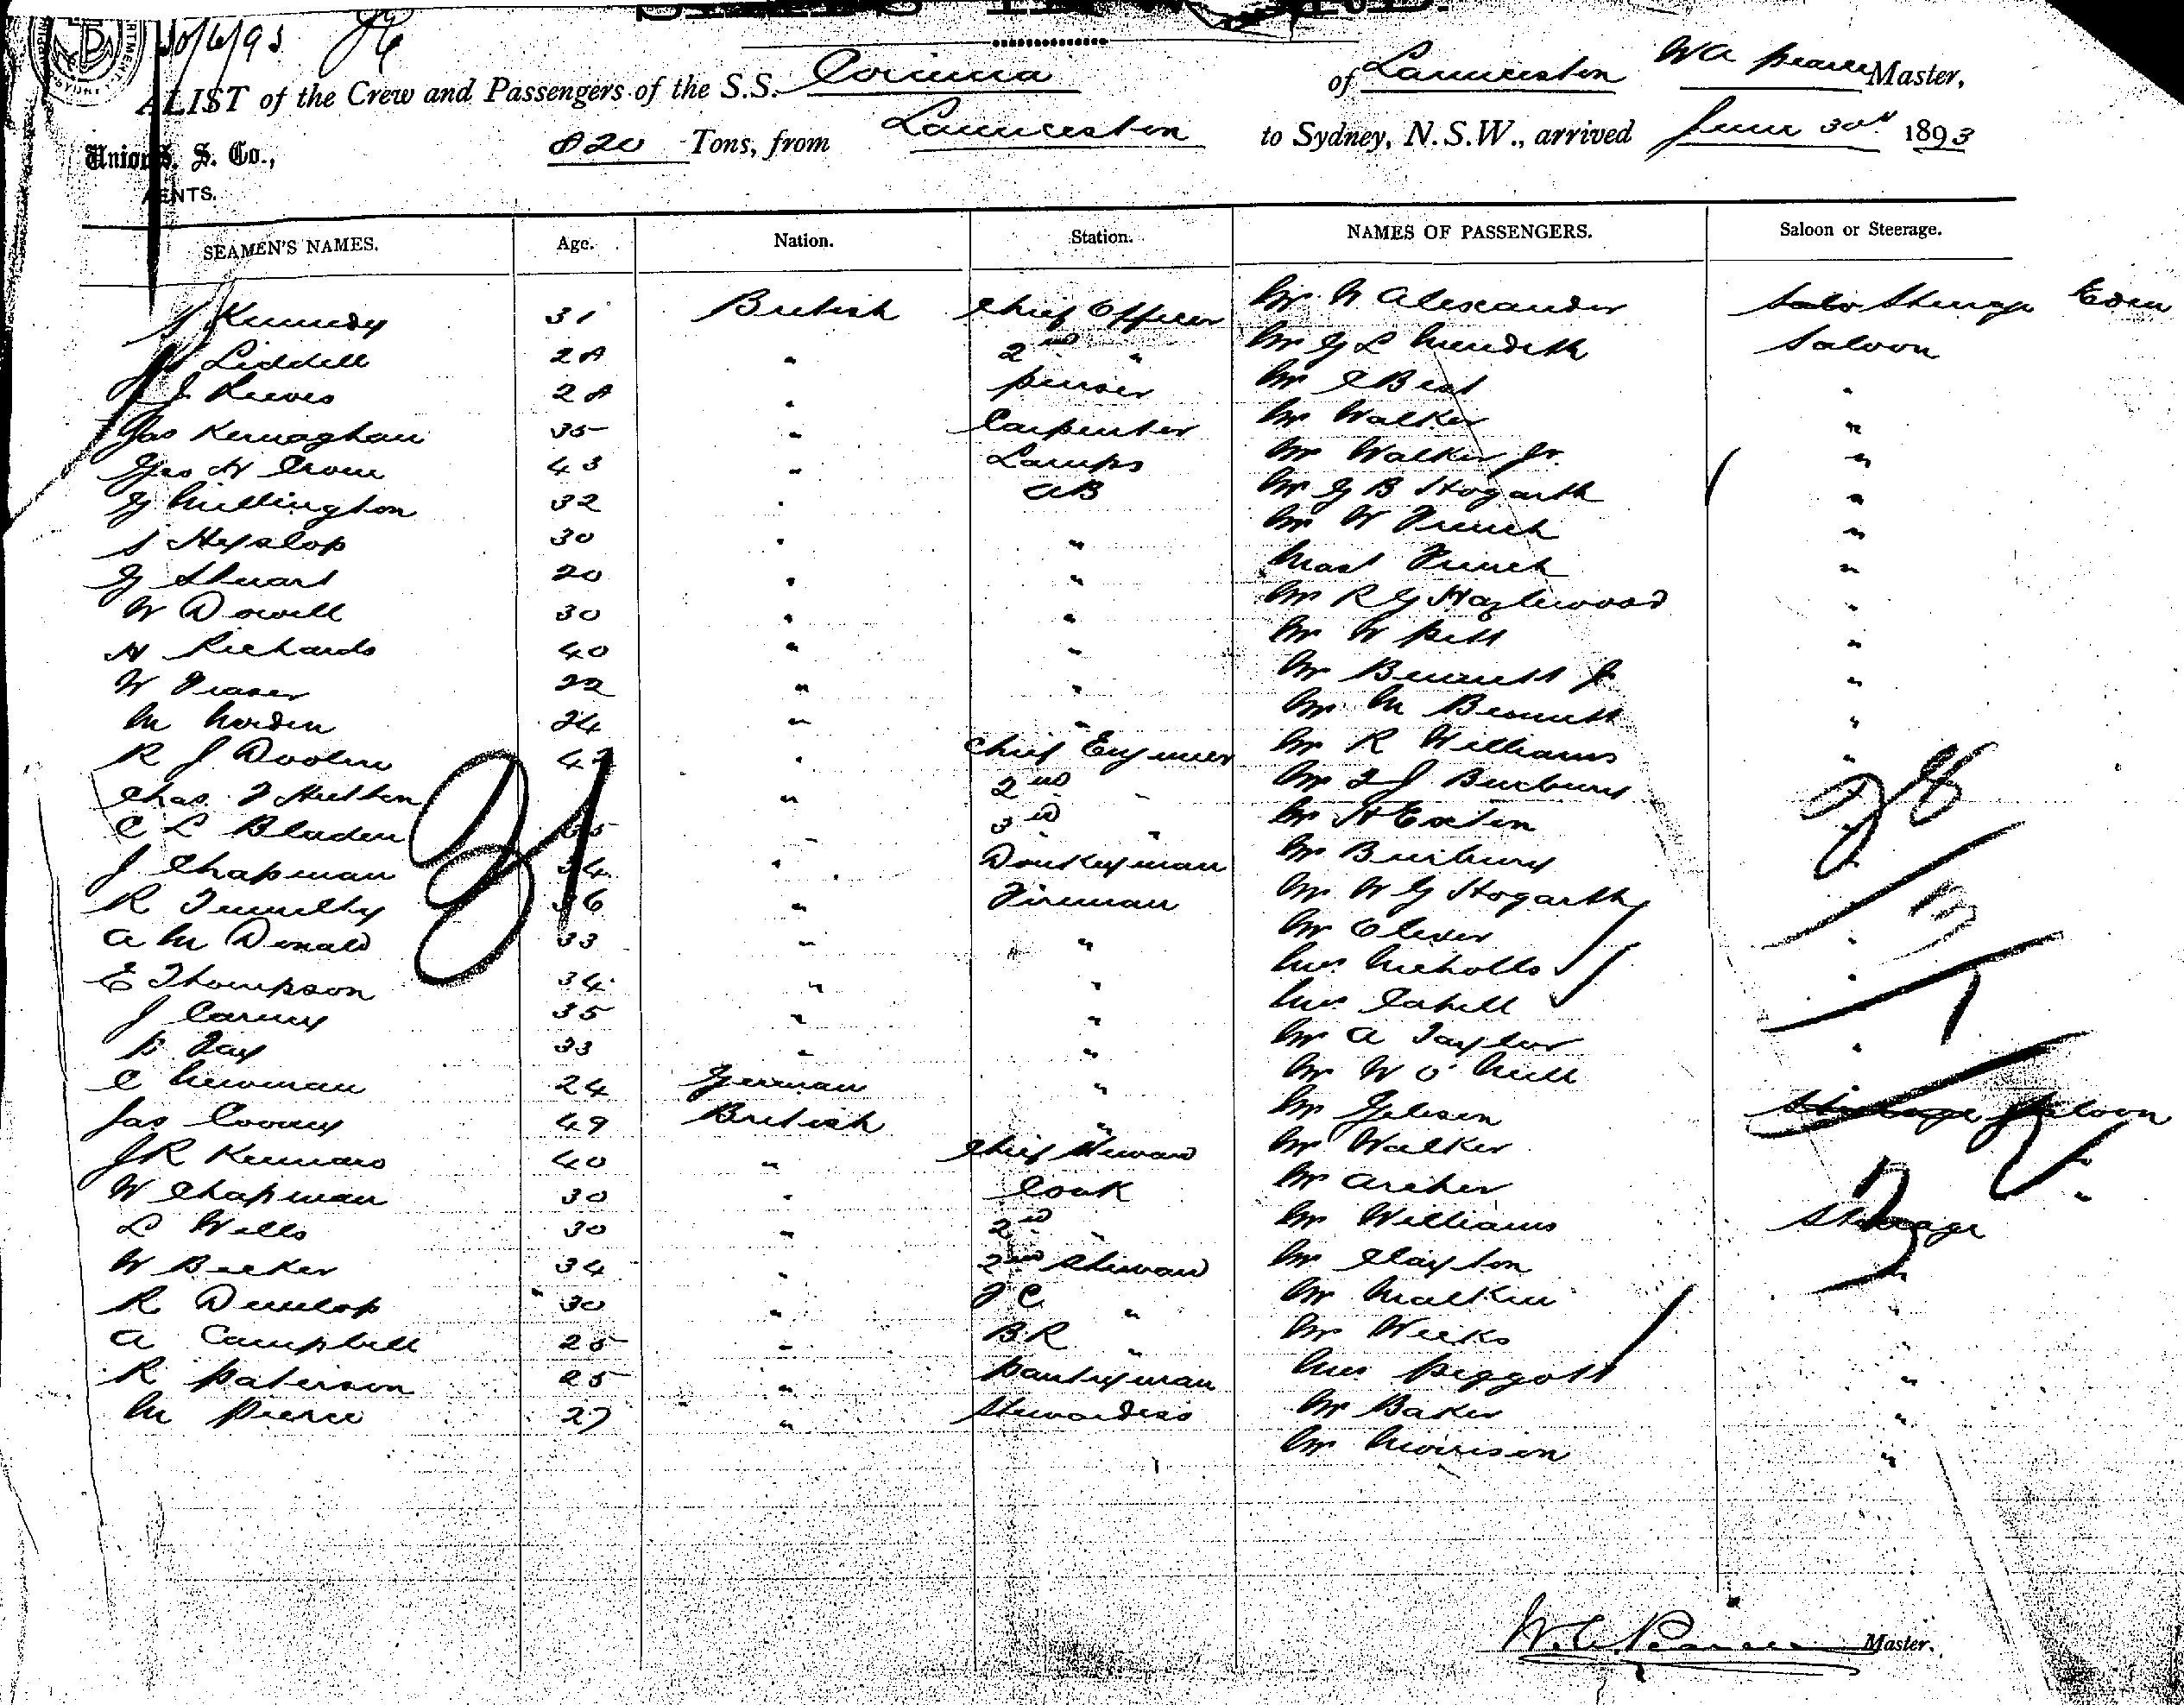 30/6/93
A LIST of the Crew and Passengers of the S.S. Corinna of Launceston W A Pearce Master,
Union S. S. Co., 820 Tons, from Launceston to Sydney, N.S.W., arrived June 30th 1893
AGENTS.
SEAMEN'S NAMES. Age. Nation. Station. NAMES OF PASSENGERS. Saloon or Steerage.
Kennedy 31 British Chief Officer Mr Alexander Steerage Eden
Liddell 28 " 2nd " Mr G L Meredith Saloon
J Reeves 28 " Purser Mr C Best "
Jas Kernaghan 35 " Carpenter Mr Walker "
Geo H Crow 43 " Lamps Mr Walker Jr. "
G Millington 32 " AB Mr G B Hogarth "
J Hyslop 30 " " Mr W French "
G Stuart 20 " " Mast French "
W Dowell 30 " " Mr R G Hazlewood "
H Richards 40 " " Mr W Pitt "
W Fraser 22 " " Mr Bennett Jr "
M Norden 24 " " Mr M Bennett "
R J Doolin 42 " Chief Engineer Mr R Williams "
Chas F Hutton " 2nd " Mr F J Burbury 28
C L Bladen 35 " 3rd " Mr H Eaton
J Chapman 34 " Donkeyman Mr Burbury "
R 36 " Fireman Mr W G Hogarth
A McDonald 33 " " Mr Oliver "
E Thompson 34 " " Mrs Nicholls "
J Carney 35 " " Mrs Cahill
P Fay 33 " " Mr A Taylor "
C Newman 24 German " Mr W O'Neill "
Jas Cooney 49 British " Mr Gibson Steerage Saloon
J R Kennard 40 " Chief Steward Mr Walker "
W Chapman 30 " Cook Mr Archer "
L Wells 30 " 2nd " Mr Williams Steerage
W Becker 34 " 2nd Steward Mr Clayton "
R Dunlop 30 " F C " Mr Malkin "
A Campbell 25 " B R " Mr Weeks "
R Paterson 25 " Pantryman Mrs Piggott "
M Pierce 27 " Stewardess Mr Baker "
Mr Morrison "
W. A. Pearce Master.